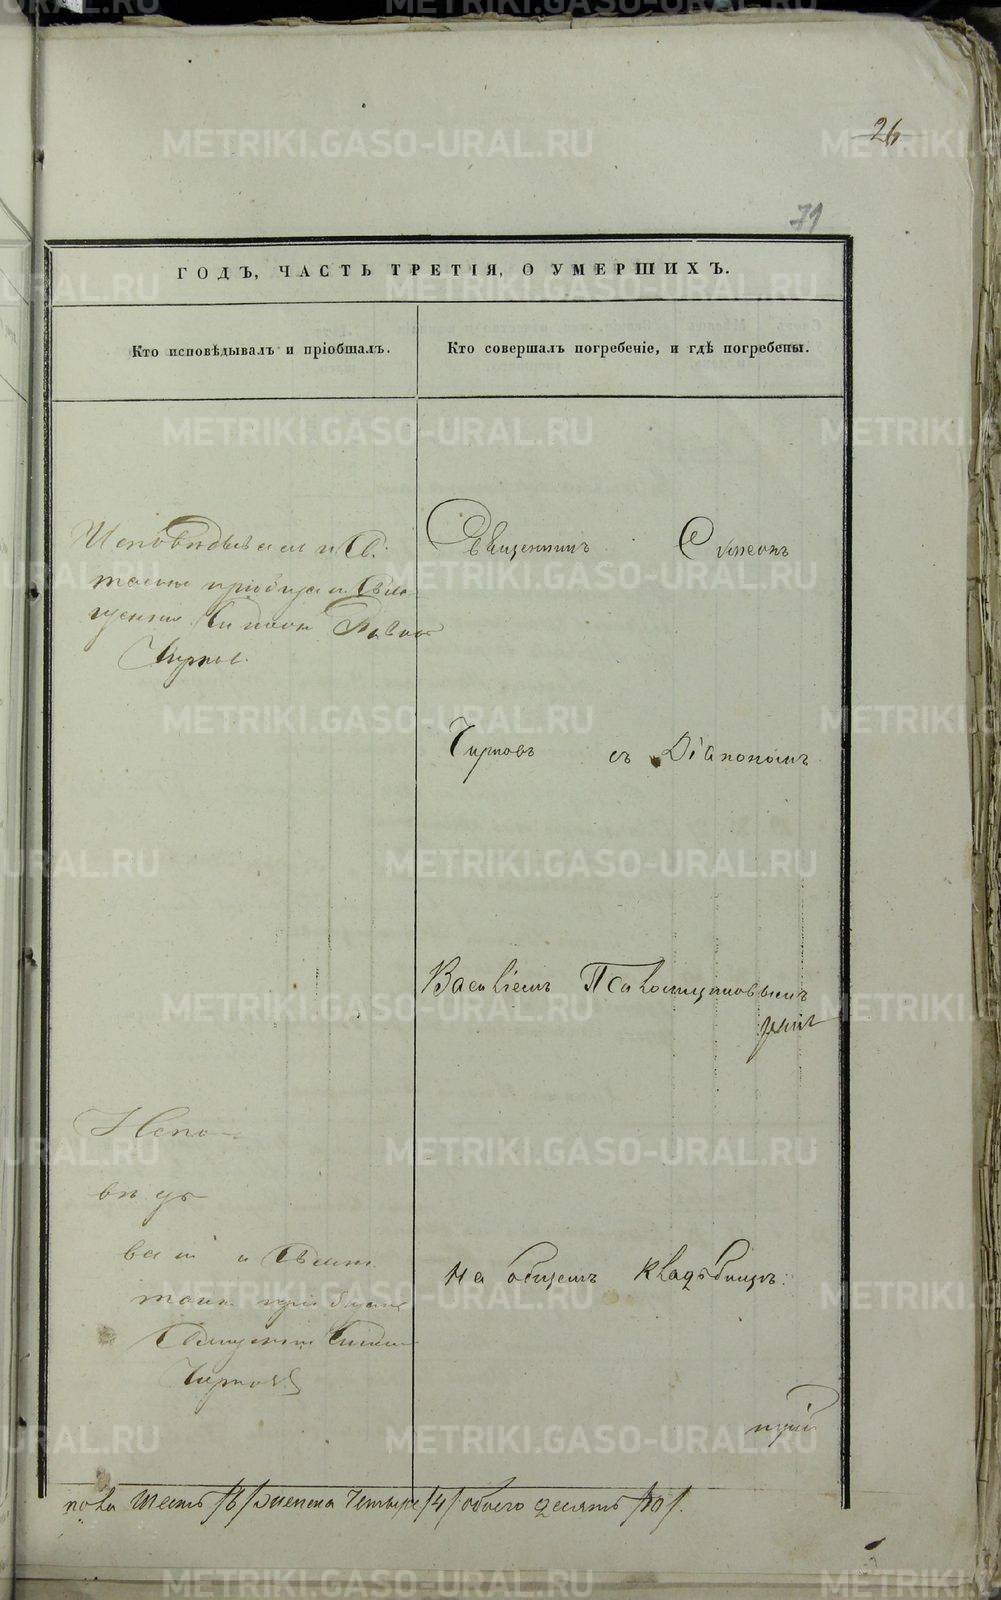 26
71
ГОДЪ, ЧАСТЬ ТРЕТІЯ, О УМЕРШИХЪ.
Кто исповѣдывалъ и пріобщалъ.
Кто совершалъ погребеніе, и гдѣ погребены.
Исповѣдывал и Св.
таинъ приобщал Свя
щенник Симеон
Чирков.
Священникъ Симеонъ
Чирковъ съ Діакономъ
Василіемъ
Испо-
вѣды
вал и Святых
таин приобщал
Священник Симеон
Чирков
на общемъ кладбищѣ.
пола шесть /6/ женска четыре /4/ обоего десять /10/.
METRIKI.GASO-URAL.RU